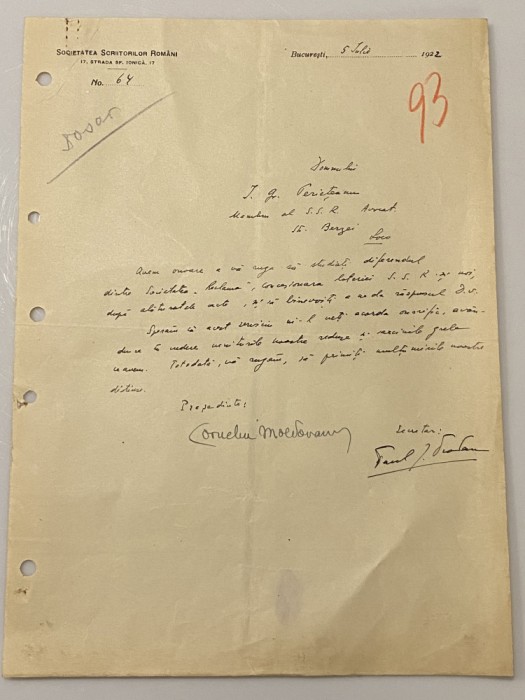 SOCIETATEA SCRIITORILOR ROMÂNI
17, STRADA SF. IONICĂ, 17
No. 64
București, 5 Iulie 1922
93
Dosar
Domnului
I. Gr. Periețeanu
Membru al S. S. R. Avocat.
St. Berzei
Loco
Avem onoare a vă ruga să studiați diferendul
dintre Societatea „ concesionara loteriei S. S. R. și noi,
după alăturatele acte, și să binevoiți a ne da răspunsul D.v.
Sperăm că acest serviciu ni-l veți acorda onorific, avân-
du-se în vedere veniturile noastre reduse și sarcinile grele
ce avem. Totodată, vă rugăm, să primiți mulțumirile noastre
distinse.
Președinte:
Corneliu Moldovanu
Secretar:
Paul I. Prodan